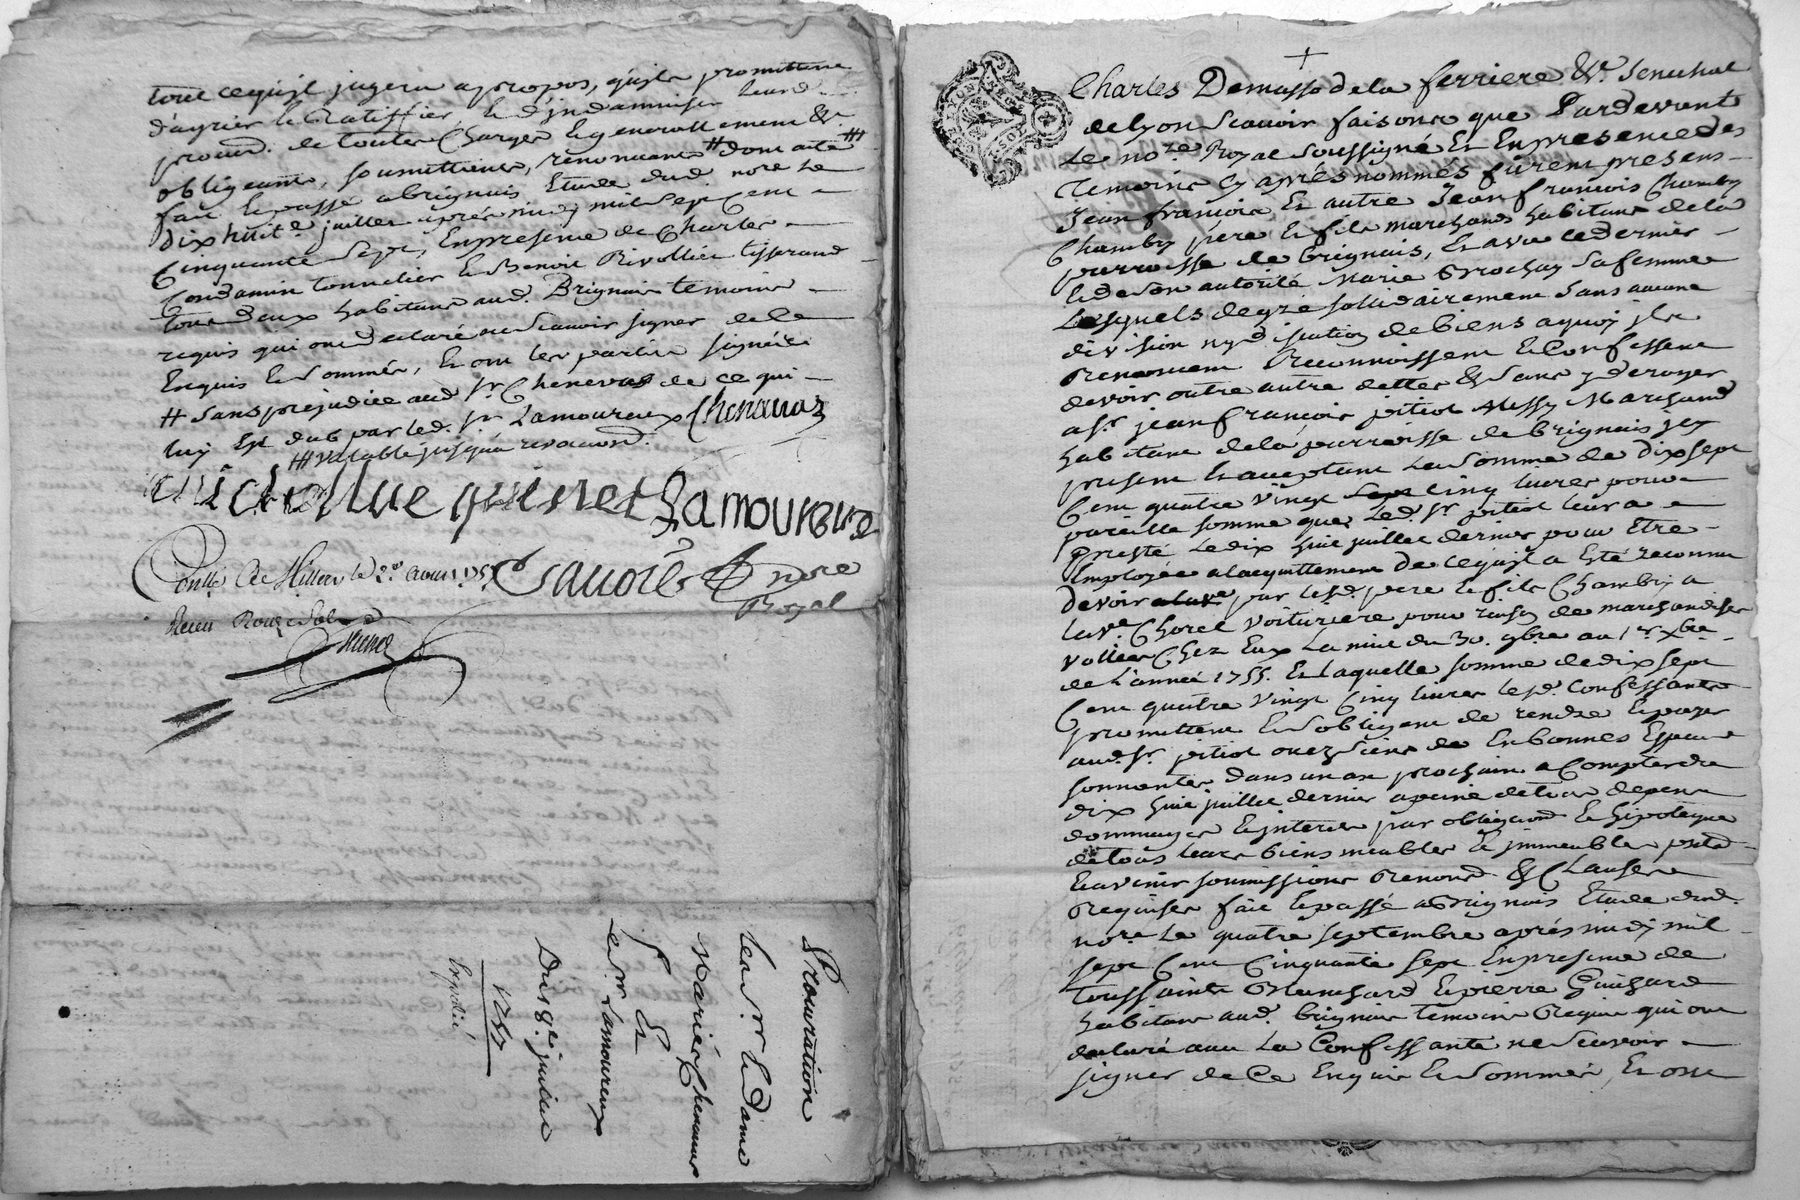 tout cequil jugera apropos, quils promettent
d'agreer le Ratiffier, et d'indamniser leurd.
procur. de toutes Charges et generallement &c
obligeants, soumettants, renonceants # dont acte ##
fait et passé a brignais Etude dud. nore le
dix huit.e juillet après midy mil sept cent
Cinquante Sept, En presence de Charles
Condamin tonnelier et Benoit Rivollier tisserand
tous deux habitants aud. Brignais temoins
requis qui ont declaré ne Scavoir signer de ce
Enquis et Sommés, et ont les parties signéés
# Sans prejudice aud. Sr. Chenevas de ce qui
luy Est dub par led. Sr. Lamoureux Chenavaz
## valable jusqu'a revocaond.
quinet Lamoureux
Conllé a St Millon le 2e aout 1757
nore
Royal
Procuration
Marie Chenavas
Et
le Sr. Lamoureux
Du 18e juillet
1757
Expedié
Charles Demasso de la ferriere &r. Senechal
de lyon Scavoir faisons que Pardevant
Le nore. Royal Soussigné Et En presence des
Temoins cy après nommés fûrent presens
Jean francois Et autre Jean francois Chambry
Chambry pere et fils marchands habitans de la
parroisse de brignais, Et avec ce dernier
et de Son autorité Marie Brochay Sa femme
Lesquels de gré solidairement Sans aucune
division ny discution de biens a quoy ils
Renoncent Reconnoissent et Confessent
devoir outre autre dettes & Sans y deroger
a Sr. jean francois pitiot Messy Marchand
habitant de la parroisse de brignais jcy
present Et acceptant La Somme de Dix sept
Cent quatre vingt Cinq livres pour
pareille somme que Led. Sr. pitiot leur a
Presté Le dix huit juillet dernier pour Etre
Employée a lacquittement de ce quil a Eté reconnu
Devoir par lesd. pere et fils Chambry a
la ve. Choret voituriere pour raison de marchandises
vollées Chez Eux La nuit du 30. 9bre au 1er Xbre
de L'année 1755. Et laquelle somme de dix sept
Cent quatre vingt Cinq livres lesd. Confessants
promettent et S'obligent de rendre et payer
aud. Sr. pitiot ou ez Siens de En bonnes Especes
sonnantes dans un an prochain a Compter du
dix huit juillet dernier a peine de tous depens
dommages et interets par obligaond. et hipoteque
de tous leurs biens meubles et immeubles pnts
et avenir soumissions Renond. & Clauses
Requises fait et passé a Brignais Etude dud.
nore. Le quatre septembre après midy mil
sept Cent Cinquante sept En presence de
toussaint Blanchard et pierre Guichard
habitans aud. brignais temoins Requis qui ont
declaré avec La Confessante ne Scavoir
signer de Ce Enquis et Sommés, Et ont